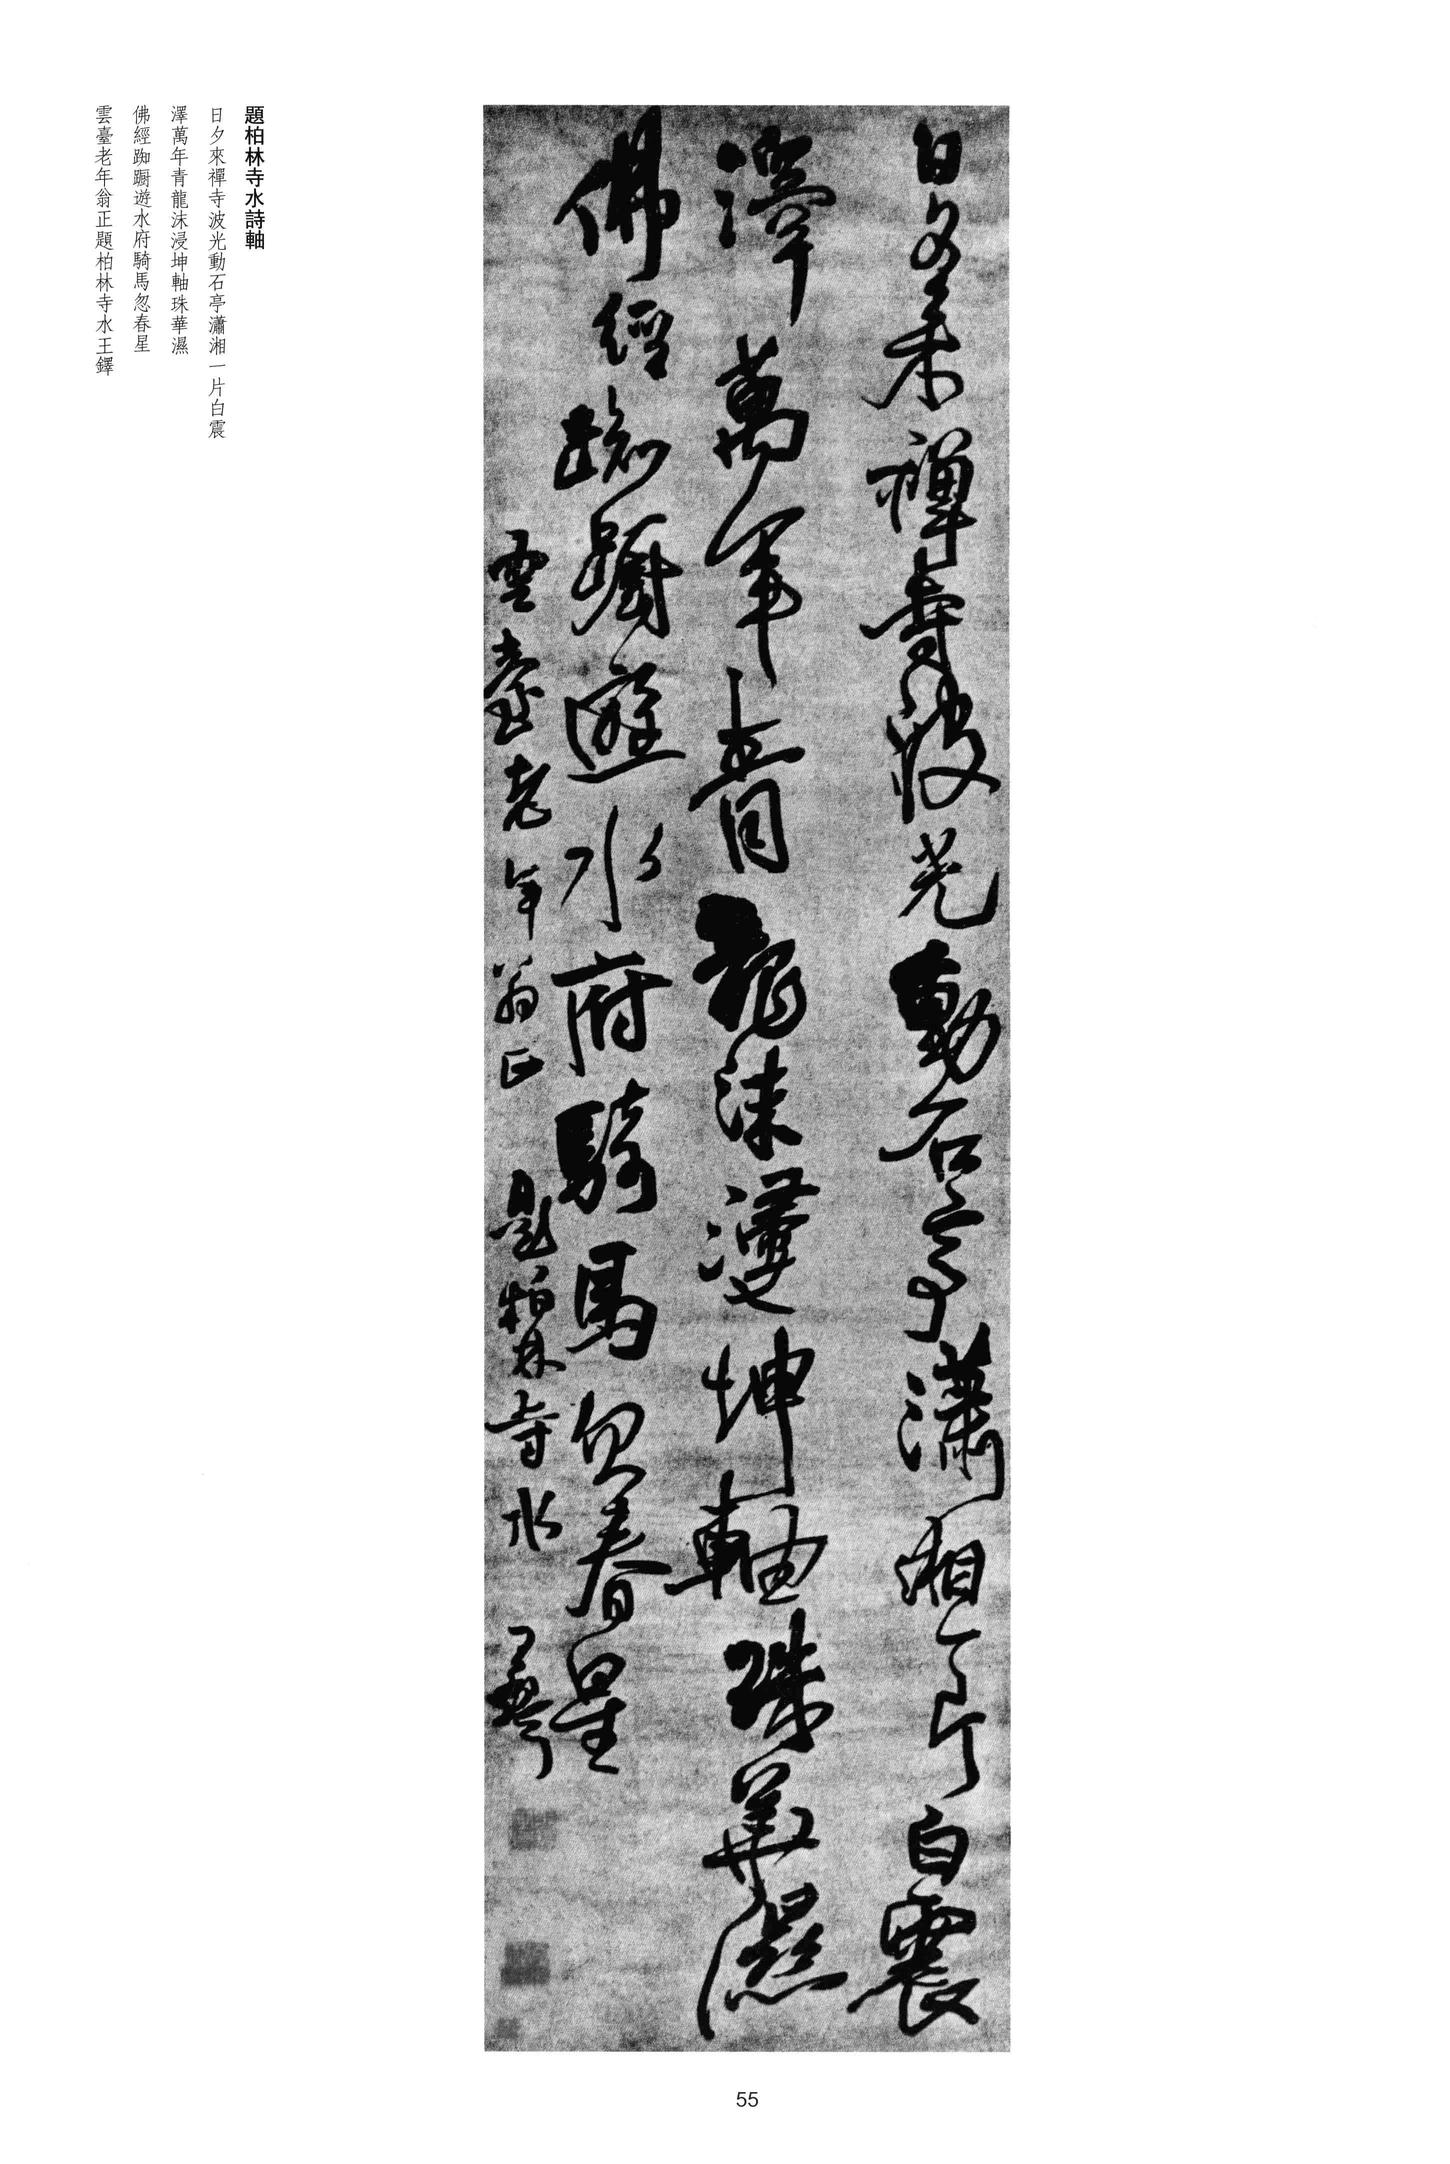 題柏林寺水詩軸
日夕來禪寺波光動石亭瀟湘一片白震
澤萬年青龍沫浸坤軸珠華濕
佛經踟躕遊水府騎馬忽春星
雲臺老年翁正題柏林寺水王鐸
日夕來禪寺波光動石亭瀟湘一片白震
澤萬年青龍沫浸坤軸珠華濕
佛經踟躕遊水府騎馬忽春星
雲臺老年翁正題柏林寺水王鐸
55